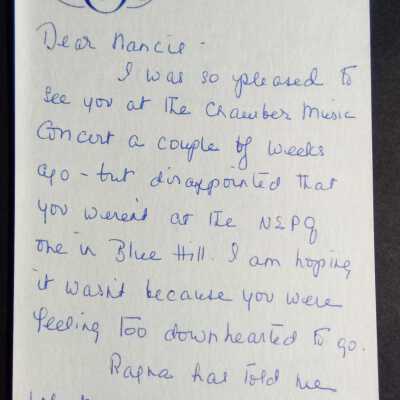 Dear Nancie -
I was so pleased to
see you at the Chamber Music
Concert a couple of weeks
ago - but disappointed that
you weren't at the NSPQ
one in Blue Hill. I am hoping
it wasn't because you were
feeling too downhearted to go.
Ragna has told me